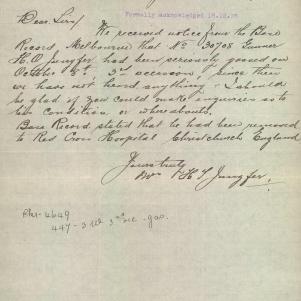 Formally acknowledged 18.12.18
Dear Sirs/
We received notice from the Base
Record, Melbourne that No 30708 Gunner
H. O. Jungfer had been seriously gassed on
October 8th, 3rd occasion, & since then
we have not heard anything. I should
be glad if you could make enquiries as to
his condition, or whereabouts,
Base Record stated that he had been removed
to Red Cross Hospital Christchurch England
Yours truly
Mrs H J Jungfer.
4649
447 - 3rd occ. gas.